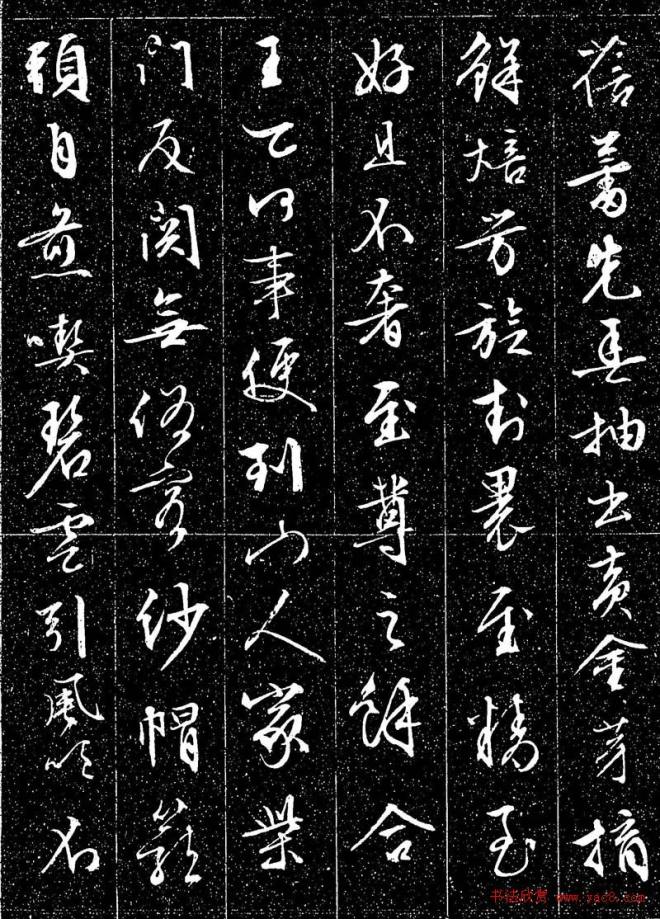 蓓蕾先春抽出黃金芽摘
鮮焙芳旋封裹至精至
好且不奢至尊之餘合
王公何事便到山人家柴
門反關無俗客紗帽籠
頭自煎喫碧雲引風吹不
书法欣赏 www.yac8.com